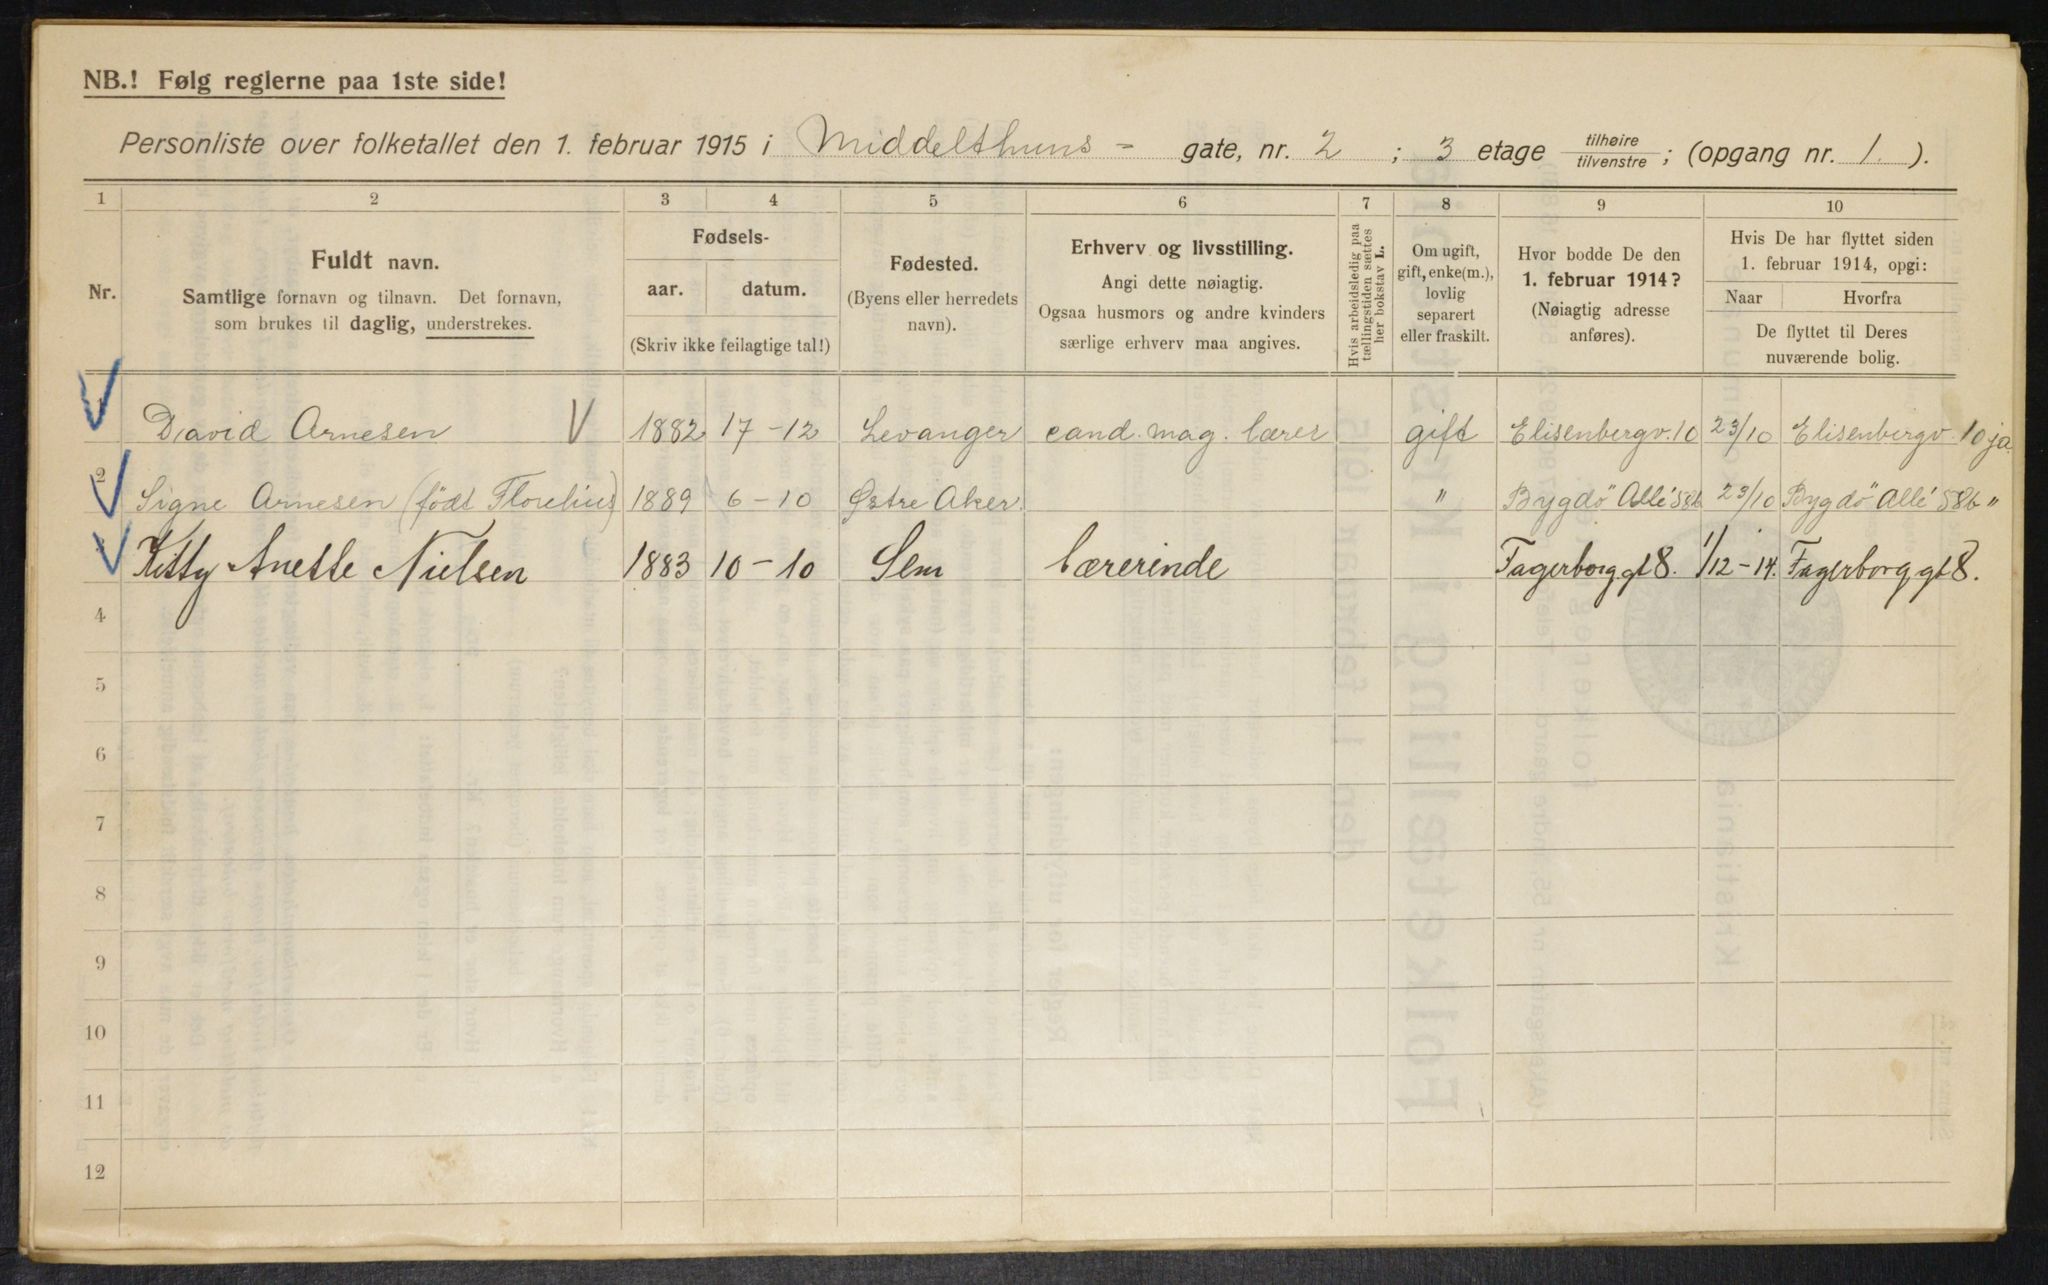 NB.! Følg reglerne paa 1ste side!
Personliste over folketallet den 1. februar 1915 i Middelthuns - gate, nr. 2 ; 3 etage tilhøire / tilvenstre ; (opgang nr. 1. ).
1 2 3 4 5 6 7 8 9 10
Nr.
Fuldt navn.
Samtlige fornavn og tilnavn. Det fornavn,
som brukes til daglig, understrekes.
Fødsels-
aar. datum.
(Skriv ikke feilagtige tal!)
Fødested.
(Byens eller herredets
navn).
Erhverv og livsstilling.
Angi dette nøiagtig.
Ogsaa husmors og andre kvinders
særlige erhverv maa angives.
Hvis arbeidsledig paa
tællingstiden sættes
her bokstav L.
Om ugift,
gift, enke(m.),
lovlig
separert
eller fraskilt.
Hvor bodde De den
1. februar 1914?
(Nøiagtig adresse
anføres).
Hvis De har flyttet siden
1. februar 1914, opgi:
Naar Hvorfra
De flyttet til Deres
nuværende bolig.
1 David Arnesen 1882 17-12 Levanger cand. mag. lærer gift Elisenbergv. 10 23/10 Elisenbergv. 10 ja.
2 Signe Arnesen (födt Florelius) 1889 6-10 Østre Aker. " Bygdö Allé 58b 23/10 Bygdö Allé 58b "
Kitty Anette Nielsen 1883 10-10 Sem Lærerinde Fagerborggt 8. 1/12-14. Fagerborggt 8.
4
5
6
7
8
9
10
11
12